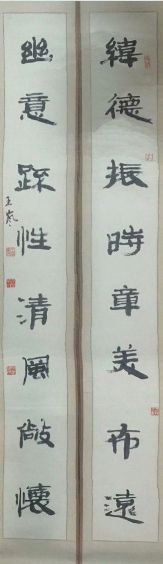 緯德振時章美布遠
幽意疎性清風敞懷